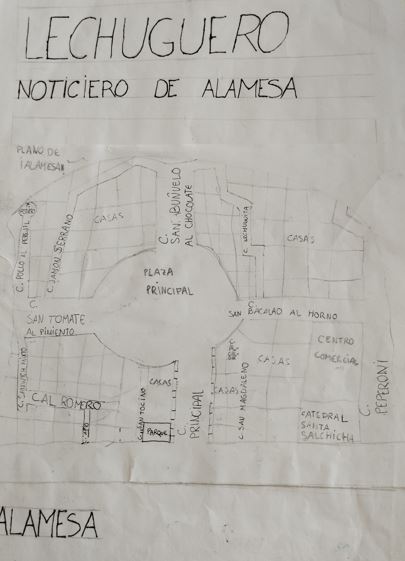 LECHUGUERO
NOTICIERO DE ALAMESA
PLANO DE
¡ALAMESA!
C. POLLO AL PEREJIL
C. JAMÓN SERRANO
CASAS
C. SAN BUÑUELO
AL CHOCOLATE
C. LECHUGUITA
CASAS
PLAZA
PRINCIPAL
C.
SAN TOMATE
AL PIMIENTO
C.
SAN BACALAO AL HORNO
CENTRO
COMERCIAL
CASAS
CAL ROMERO
CASAS
C. SAN TOCINO
PARQUE
C. PRINCIPAL
CASAS
C. SAN MAGDALENO
CATEDRAL
SANTA
SALCHICHA
C. PEPERONI
ALAMESA